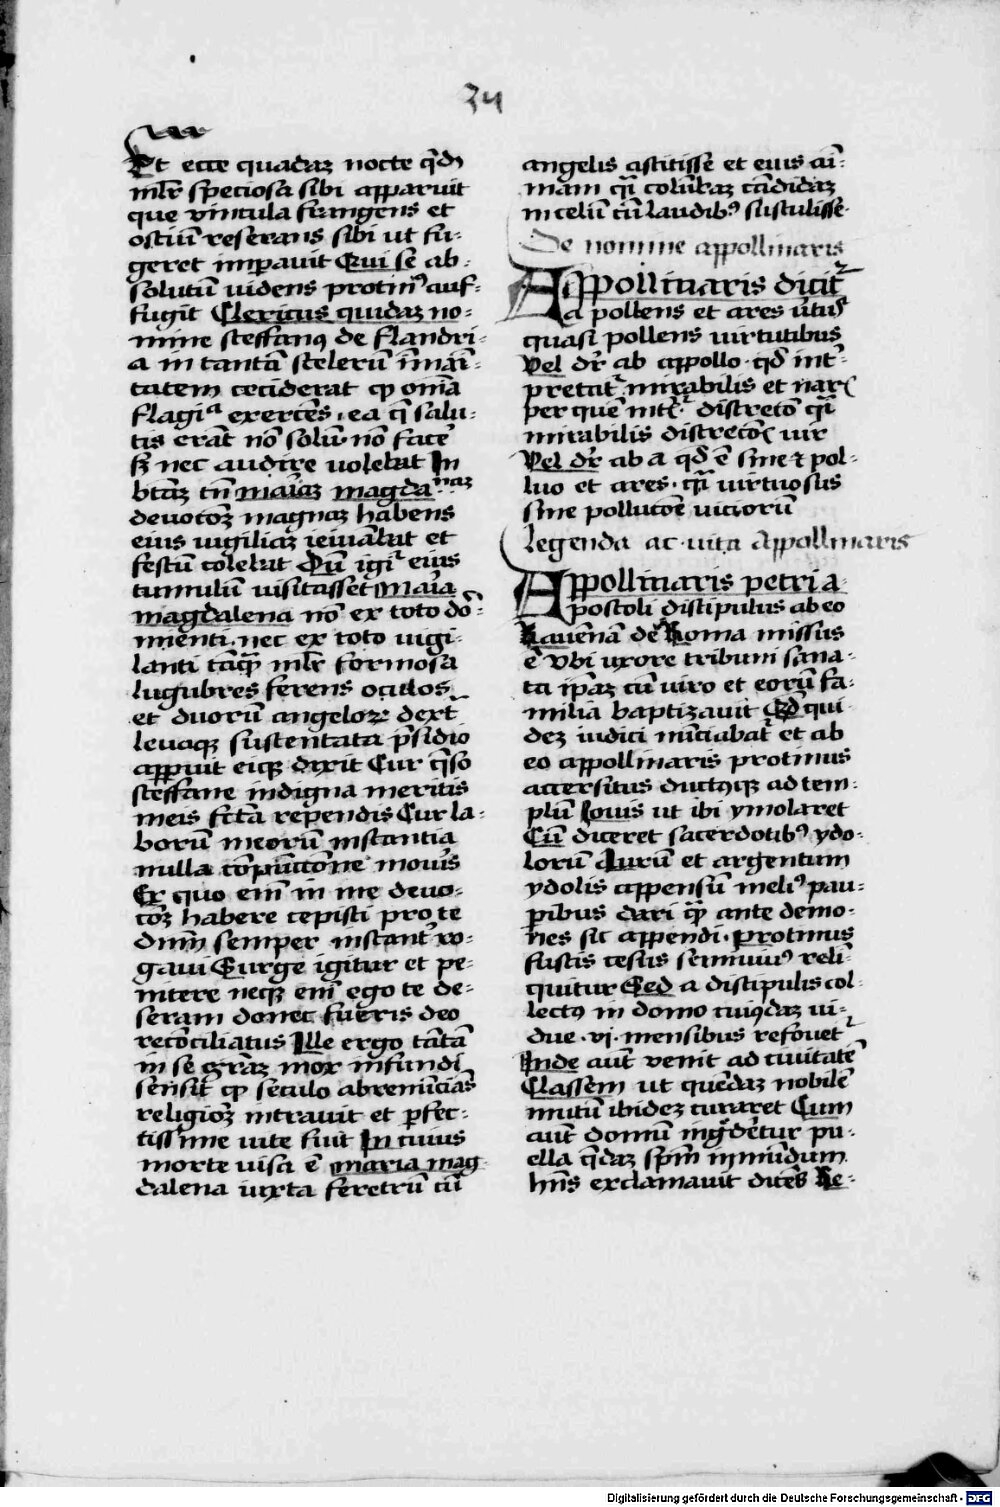 34
Et ecce quadaz nocte qdā
mlr̄ speciosa sibi apparuit
que vincula frangens et
ostiū reserans sibi ut fu-
geret imperauit Qui se ab-
solutū uidens protinꝰ auf-
fugit Clericus quidaz no-
mine steffanꝰ de flandri-
a in tantā scelerū īmāi-
tatem ceciderat ꝙ om̄ia
flagia exercēs ea q̄ salu-
tis erāt nō solū nō facē
sz nec audire volebat In
btāz tn̄ mariaz magdanaz
deuotōz magnaz habens
eius uigiliaz ieiunabat et
festū colebat Cū igir eius
tumulū uisitasset maria
magdalena nō ex toto dō-
mienti nec ex toto uigi-
lanti tāqꝫ mlr̄ formosa
lugubres ferens oculos
et duorū angeloꝝ dext̄
leuaqꝫ sustentata p̄sidio
apparuit eiqꝫ dixit Cur q̄so
steffane indigna meritis
meis fctā rependis Cur la-
borū meorū instantia
nulla cōpūctōne mouīs
Ex quo enī in me deuo-
tōz habere cepisti pro te
dnm̄ semper instant̄ ro-
gaui Surge igitur et pe-
nitere neqꝫ enī ego te de-
seram donec fueris deo
recōciliatus Ille ergo tātā
in se grāz mox infundi
sensit ꝙ seculo abrenūciās
religiōz intrauit et ꝑfec-
tissime uite fuit In cuius
morte uisa ē maria mag
dalena iuxta feretrū cū
angelis astitisse et eius ani-
mam qꝫi columbaz candidaz
in celū cū laudibꝰ sustulisse.
De nomine appollinaris
Appollinaris dicit᷑
a pollens et ares ūtus
quasi pollens uirtutibus
Vel dr̄ ab appollo qd int̄-
pretatᷣ mirabilis et nares
per quē int᷑. discretō qꝫi
mirabilis discretōis uir
Vel dr̄ ab a qd ē sine et pol-
luo et ares. qꝫi uirtuosus
sine pollucōe uiciorū
Legenda ac uita Appollinaris
Appollinaris petri a-
postoli discipulus ab eo
Rauēnā de Roma missus
ē vbi uxorē tribuni sana-
ta ipaz cū uiro et eorū fa-
miliā baptizauit Qd qui-
dez iudici nūciabatᷣ et ab
eo appollinaris protinus
accersitus ductusqꝫ ad tem-
plū Iouis ut ibi ymolaret
Cū diceret sacerdotibꝰ ydo-
lorū Aurū et argentum
ydolis appensū meliꝰ pau-
pibus dari qꝫ ante demo-
nes sic appendi. Protinus
fustis cesus semiuiuꝰ reli-
quitur Sed a discipulis col-
lectꝰ in domo cuiꝰdaz ui-
due .vi. mensibus refouetᷣ
Inde aūt venit ad ciuitatē
Classem ut quēdaz nobilē
mutū ibidez curaret Cum
aūt domū ingrederetur pu-
ella q̄daz spm̄ inmūdum
hn̄s exclamauit dicēs Re-
Digitalisierung gefördert durch die Deutsche Forschungsgemeinschaft - DFG